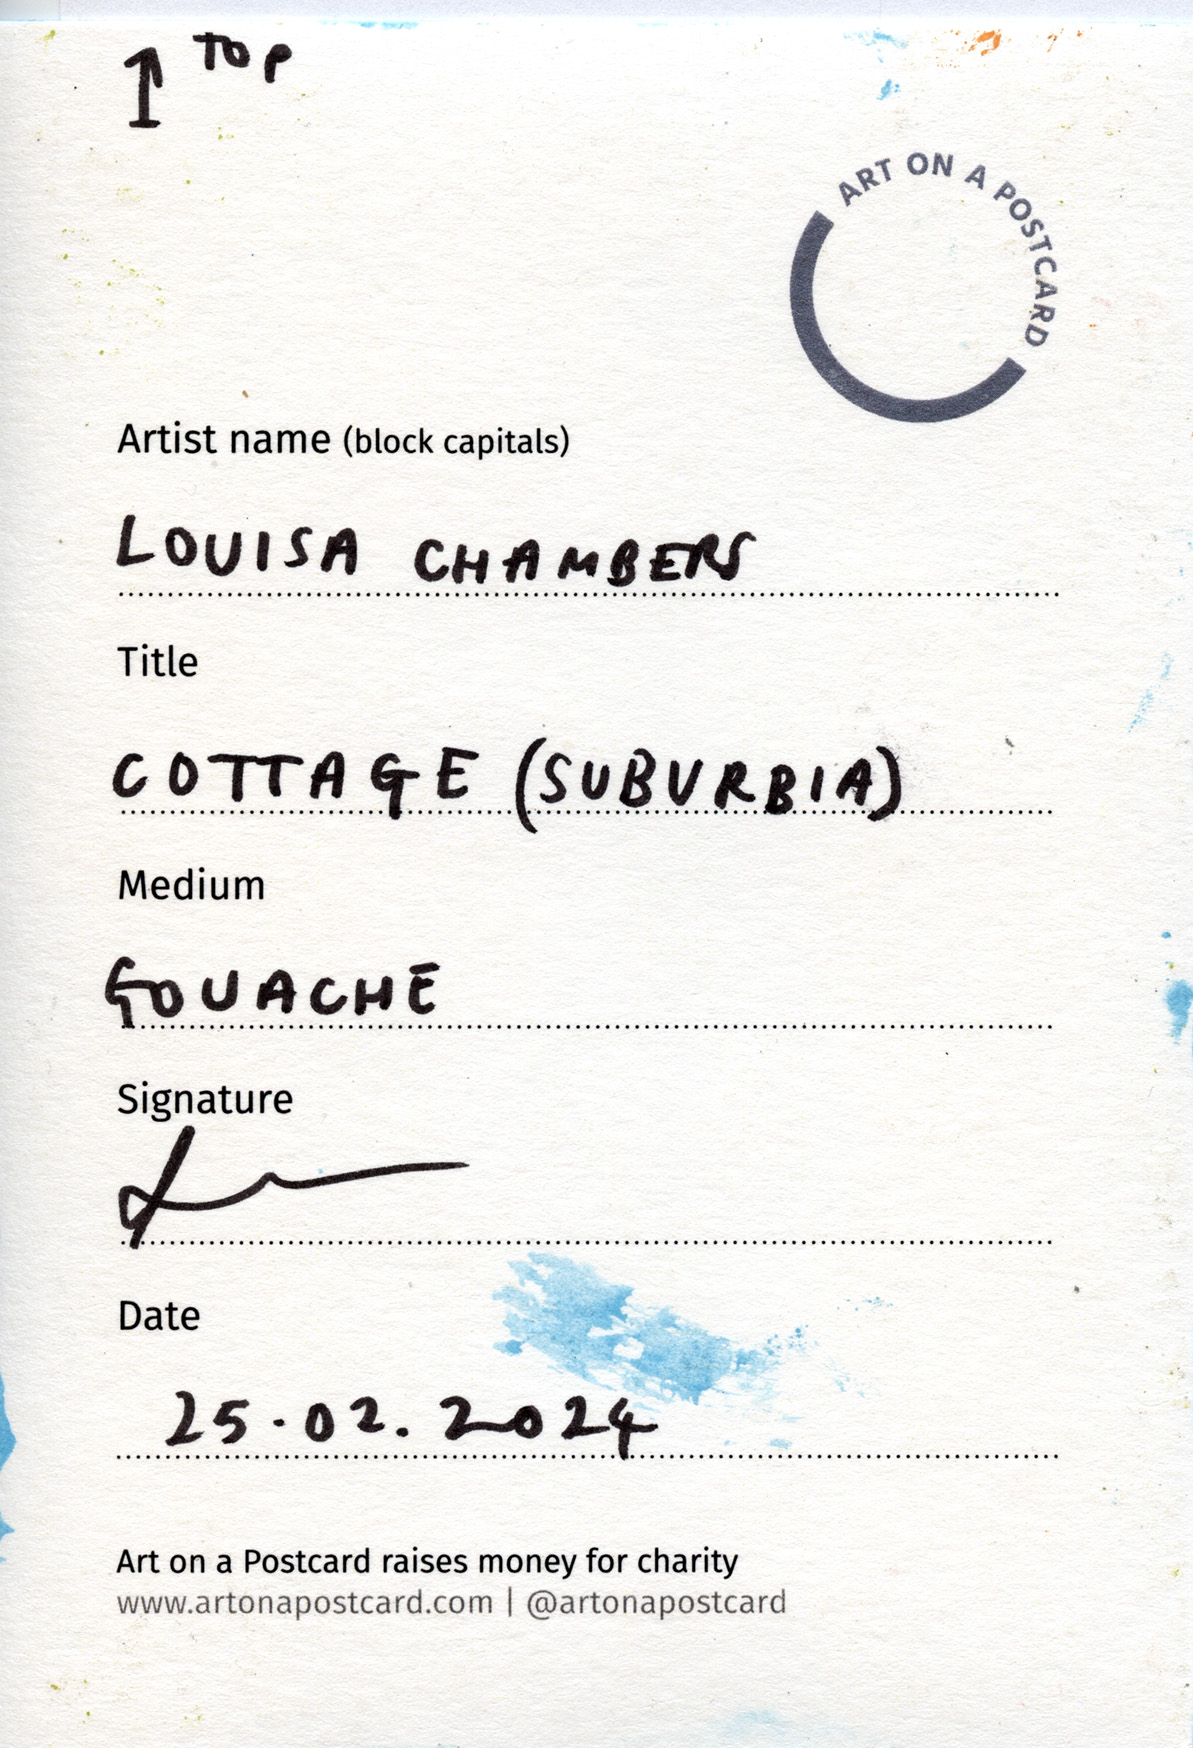 ↑ TOP
ART ON A POSTCARD
Artist name (block capitals)
LOUISA CHAMBERS
Title
COTTAGE (SUBURBIA)
Medium
GOUACHE
Signature
Date
25.02.2024
Art on a Postcard raises money for charity
www.artonapostcard.com | @artonapostcard